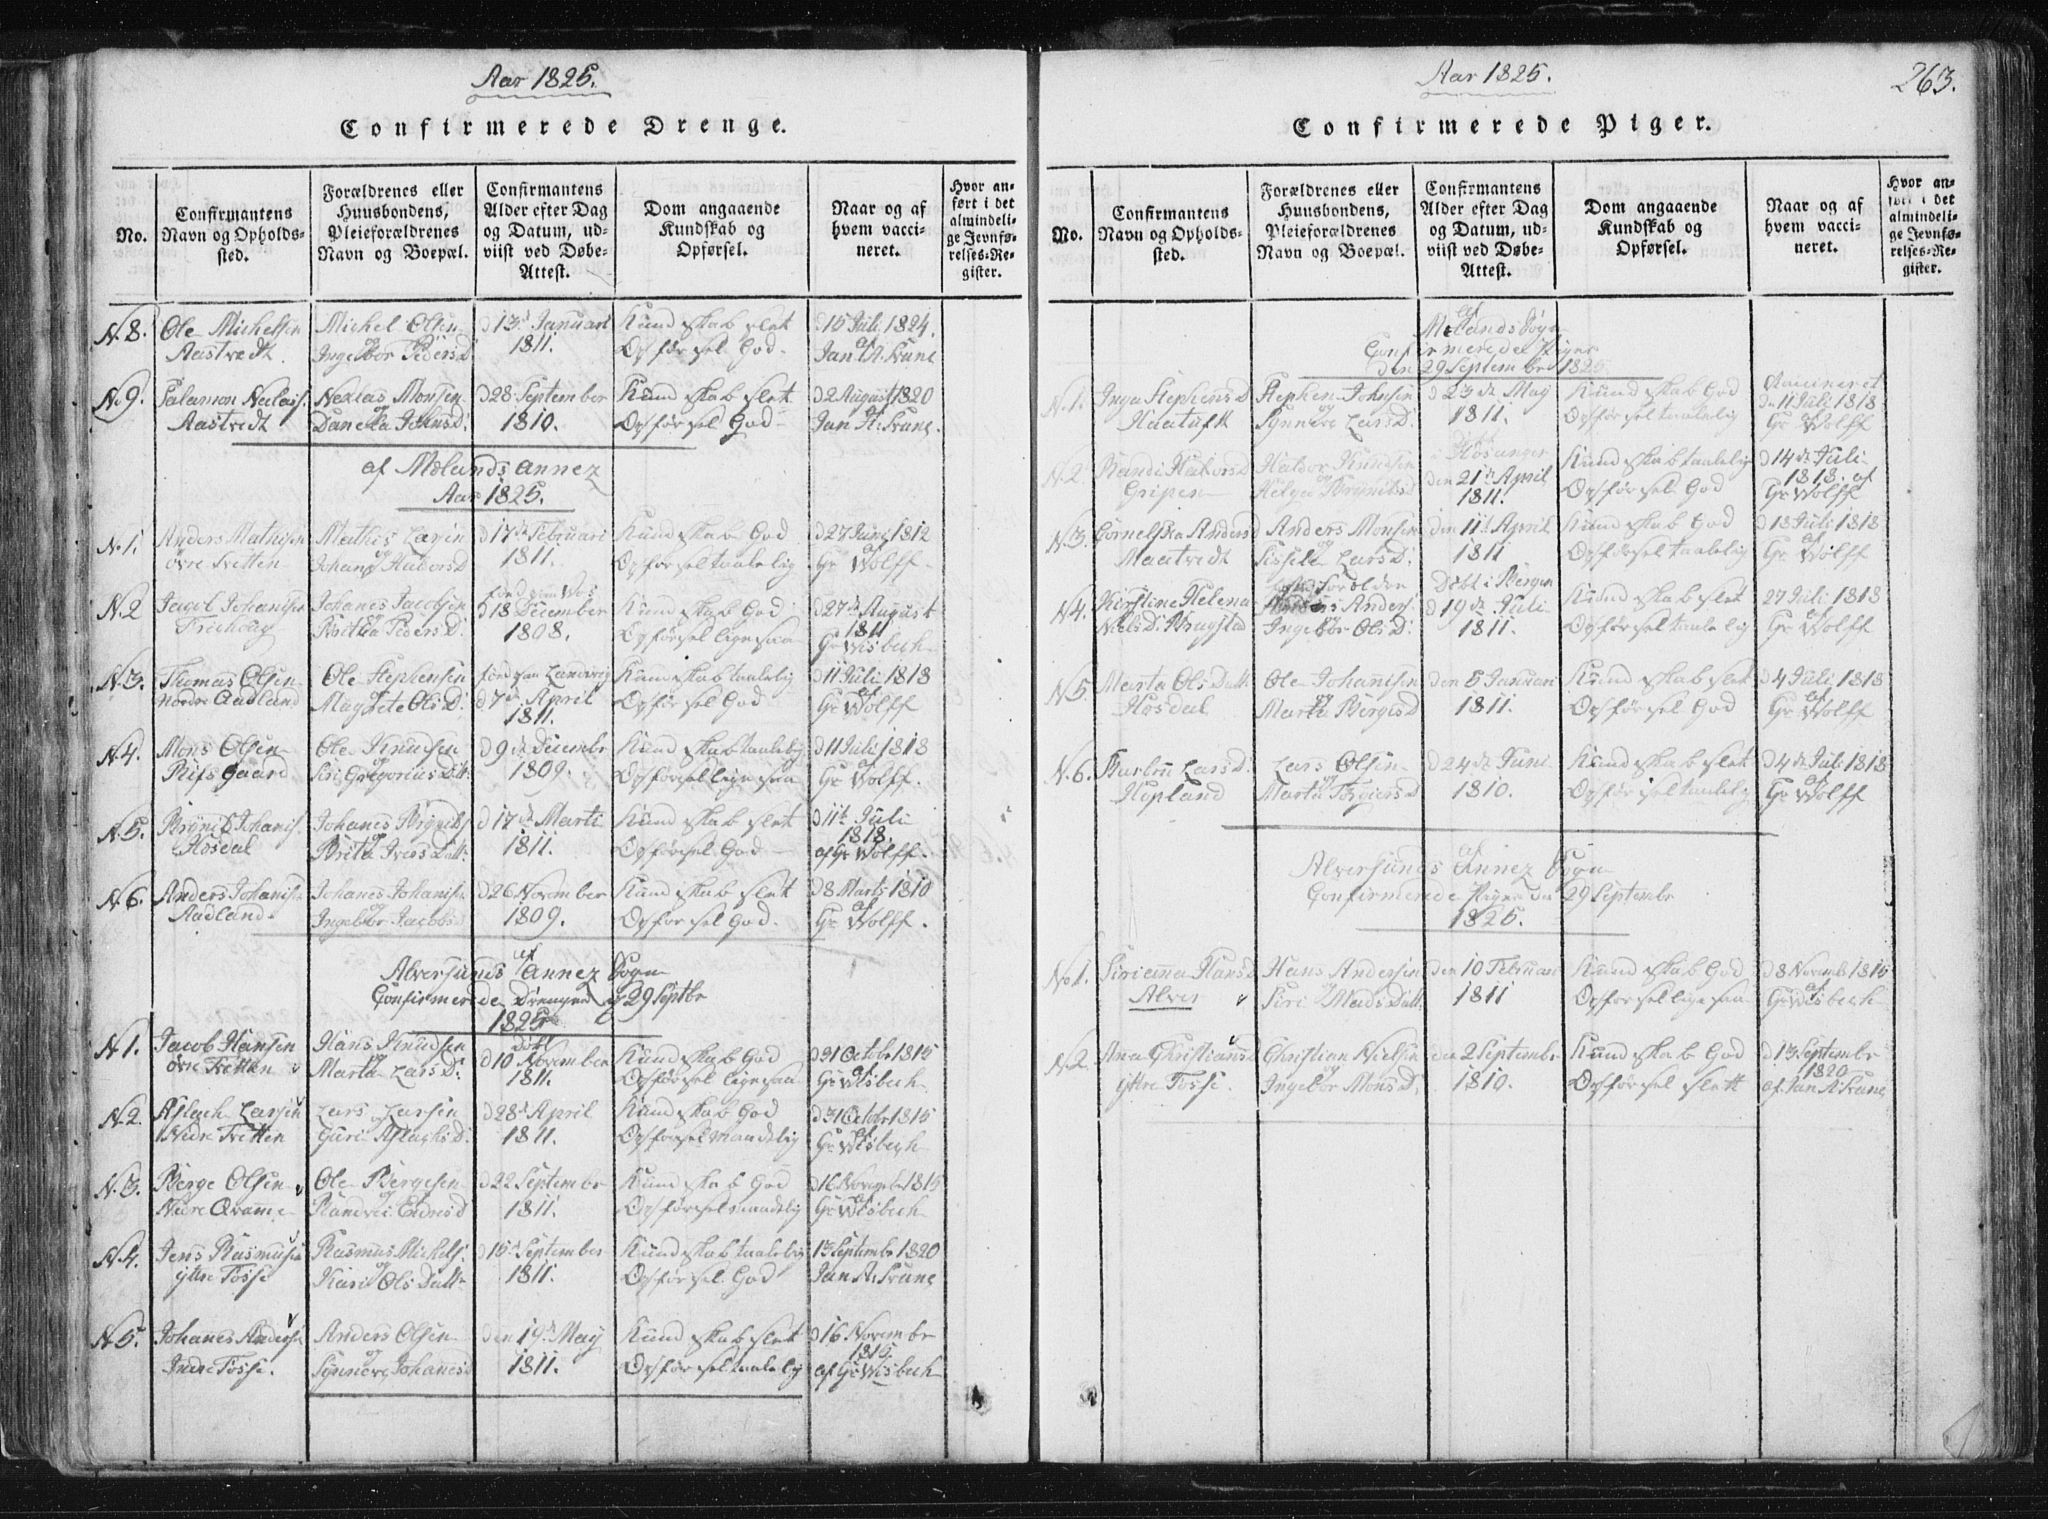 Aar 1825.
Confirmerede Drenge.
No.
Confirmantens
Navn og Opholds-
sted.
Forældrenes eller
Huusbondens,
Pleieforældrenes
Navn og Boepæl.
Confirmantens
Alder efter Dag
og Datum, ud-
viist ved Døbe-
Attest.
Dom angaaende
Kundskab og
Opførsel.
Naar og af
hvem vacci-
neret.
Hvor an-
ført i det
almindeli-
ge Jevnfø-
relses-Re-
gister.
N. 8.
Ole Michelsen
Aastvedt
Michel Olsen
og
Ingebor Peders D
d 13d Januari
1811.
Kundskab slet
Opførsel God
d 15 Juli 1824.
af
Jan A. Trane
N. 9.
Salamon
Aastvedt
Neklas Monsen
og
Johns D
d 28 September
1810.
Kundskab slet
Opførsel God
d 2 August 1820
Jan A. Trane.
af Mælands annex
Aar 1825.
N. 1.
Anders Mathisen
övre Tvetten
Mathis
og
d 17de Februari
1811.
Kundskab God
Opførsel taalelig
d 27 Juni 1812
af
Gr Wolff
N. 2
Jacob Johanisen
Johanes Jacobsen
og
Britha Peders D.
d 18 December
1808.
Kundskab God
Opførsel ligesaa
d 27de August
1811
Gr Wisbech
N. 3.
Thomas Olsen
nordre Aadland
Ole Stephensen
og
Magrete Ols D.
d 7de April
1811.
Kundskab taalelig
Opførsel God
d 11 Juli 1818
af
Gr Wolff
N. 4.
Mons Olsen
Risgaard
Ole Knudsen
og
Siri Gregorius Datt:
d 9de Decembr
1809.
Kundskab taalelig
Opførsel ligesaa
d 11 Juli 1818
af
Gr Wolff.
N. 5.
Brynild Johanis.
Hosdal
Johanes Brynilds
og
Brita Ivers Datt:
d 17de Marti
1811.
Kundskab slet
Opførsel God
d 11te Juli
1818.
af Gr Wolff.
N. 6.
Anders Johanisen
Aadland
Johanes Johanisen
og
Ingebor Jacobs D
d 26 November
1809.
Kundskab slet
Opførsel God.
d 8 Marts 1810
af
Gr Wolff.
af
Alversunds Annex Sogn
Confirmerede Drenge d 29 Septbr
1825
N. 1.
Jacob Hansen
övre Tvetten
Hans Knudsen
og
Marta Lars D:
Døbt
d 10 November
1811.
Kundskab God
Opførsel ligesaa
d 31 Octobr 1815
af
Gr Wisbech
N. 2.
Aslach Larsen
Nedre Tvetten
Lars Larsen
og
Guri Aslachs D.
d 28d April
1811.
Kundskab God
Opførsel maadelig
d 31 Octobr 1815
af
Gr Wisbech
N. 3.
Berge Olsen
Nedre Qvamme
Ole Bergesen
og
Randvei Endres D
d 22 Septembr
1811.
Kundskab God
Opførsel maadelig
d 16 Novembr 1815
af
Gr Wisbech
N. 4.
Jens Rasmusen
ytre Fosse
Rasmus Michels.
og
Kari Ols Datt
d 15d September
1811.
Kundskab taalelig
Opførsel God
13 Septembr 1820
Jan A. Trane
N. 5.
Johanes Anderse
Indre Fosse.
Anders Olsen
og
Synneve Johanes D
den 19de May
1811.
Kundskab slet
Opførsel taalelig
d 16 Novembr
1815.
af Gr Wisbech
Aar 1825.
263.
Confirmerede Piger.
No.
Confirmantens
Navn og Opholds-
sted.
Forældrenes eller
Huusbondens,
Pleieforældrenes
Navn og Boepæl.
Confirmantens
Alder efter Dag
og Datum, ud-
viist ved Døbe-
Attest.
Dom angaaende
Kundskab og
Opførsel.
Naar og af
hvem vacci-
neret.
Hvor an-
ført i det
almindeli-
ge Jevnfø-
relses-Re-
gister.
af
Mælands Sogn
Confirmerede Piger
den 29 Septembr 1825.
N. 1.
Inga Stephens D
Haatuft
Stephen Johnsen
og
Synneve Lars D.
d 23de May
1811.
Kundskab God
Opførsel taalelig
Vaccineret
den 11 Juli 1818
Gr Wolff
N. 2
Randi Haldors D
Gripen
Haldor Knudsen
og
Helga Brynilds D
i Hosanger
den 21de April
1811.
Kundskab taalelig
Opførsel God
d 14de Juli
1818. af
Gr Wolff
N. 3.
Cornelska Anders D
Maatvedt
Anders Monsen
og
Sissela Lars D:
den 11te April
1811
Kundskab God
Opførsel taalelig
d 18 Juli 1818
af
Gr Wolff
N. 4.
Kirstine Helena
Niels D. Vragstad
Anders.
Ingebor Ols D.
Døbt i Bergen
d 19de Juli
1811.
Kundskab slet
Opførsel taalelig
27 Juli 1818
af
Gr Wolff
N. 5.
Marta Ols Datt
Hosdal
Ole Johanisen
og
Marta Berges D
den 5 Januari
1811.
Kundskab slet
Opførsel God
d 4 Juli 1818
af
Gr Wolff
N. 6.
Lars D.
Hopland
Lars Olsen
og
Marta Torgiers D
d 24de Juni
1810.
Kundskab slet
Opførsel taalelig
d 4de Juli 1818
af
Gr Wolff
af
Alversunds Annex Sogn
Confirmerede Piger den 29 Septembr
1825.
No 1.
Sirianna Hans D
Alver
Hans Andersen
og
Siri Mads Datt.
den 10 Februari
1811
Kundskab God
Opførsel ligesaa
d 8 Novembr 1815
af
Gr Wisbech
N. 2.
Ana Christians D
yttre Fosse.
Christian Nielsen
og
Ingebor Mons D.
den 2 Septembr
1810.
Kundskab God
Opførsel slett
d 13 Septembr
1820
af Jan A. Trane